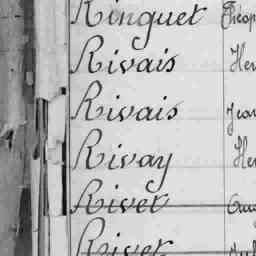 Ringuet Théop
Rivais Hen
Rivais Jean
Rivay Hen
Rivet
Rivet